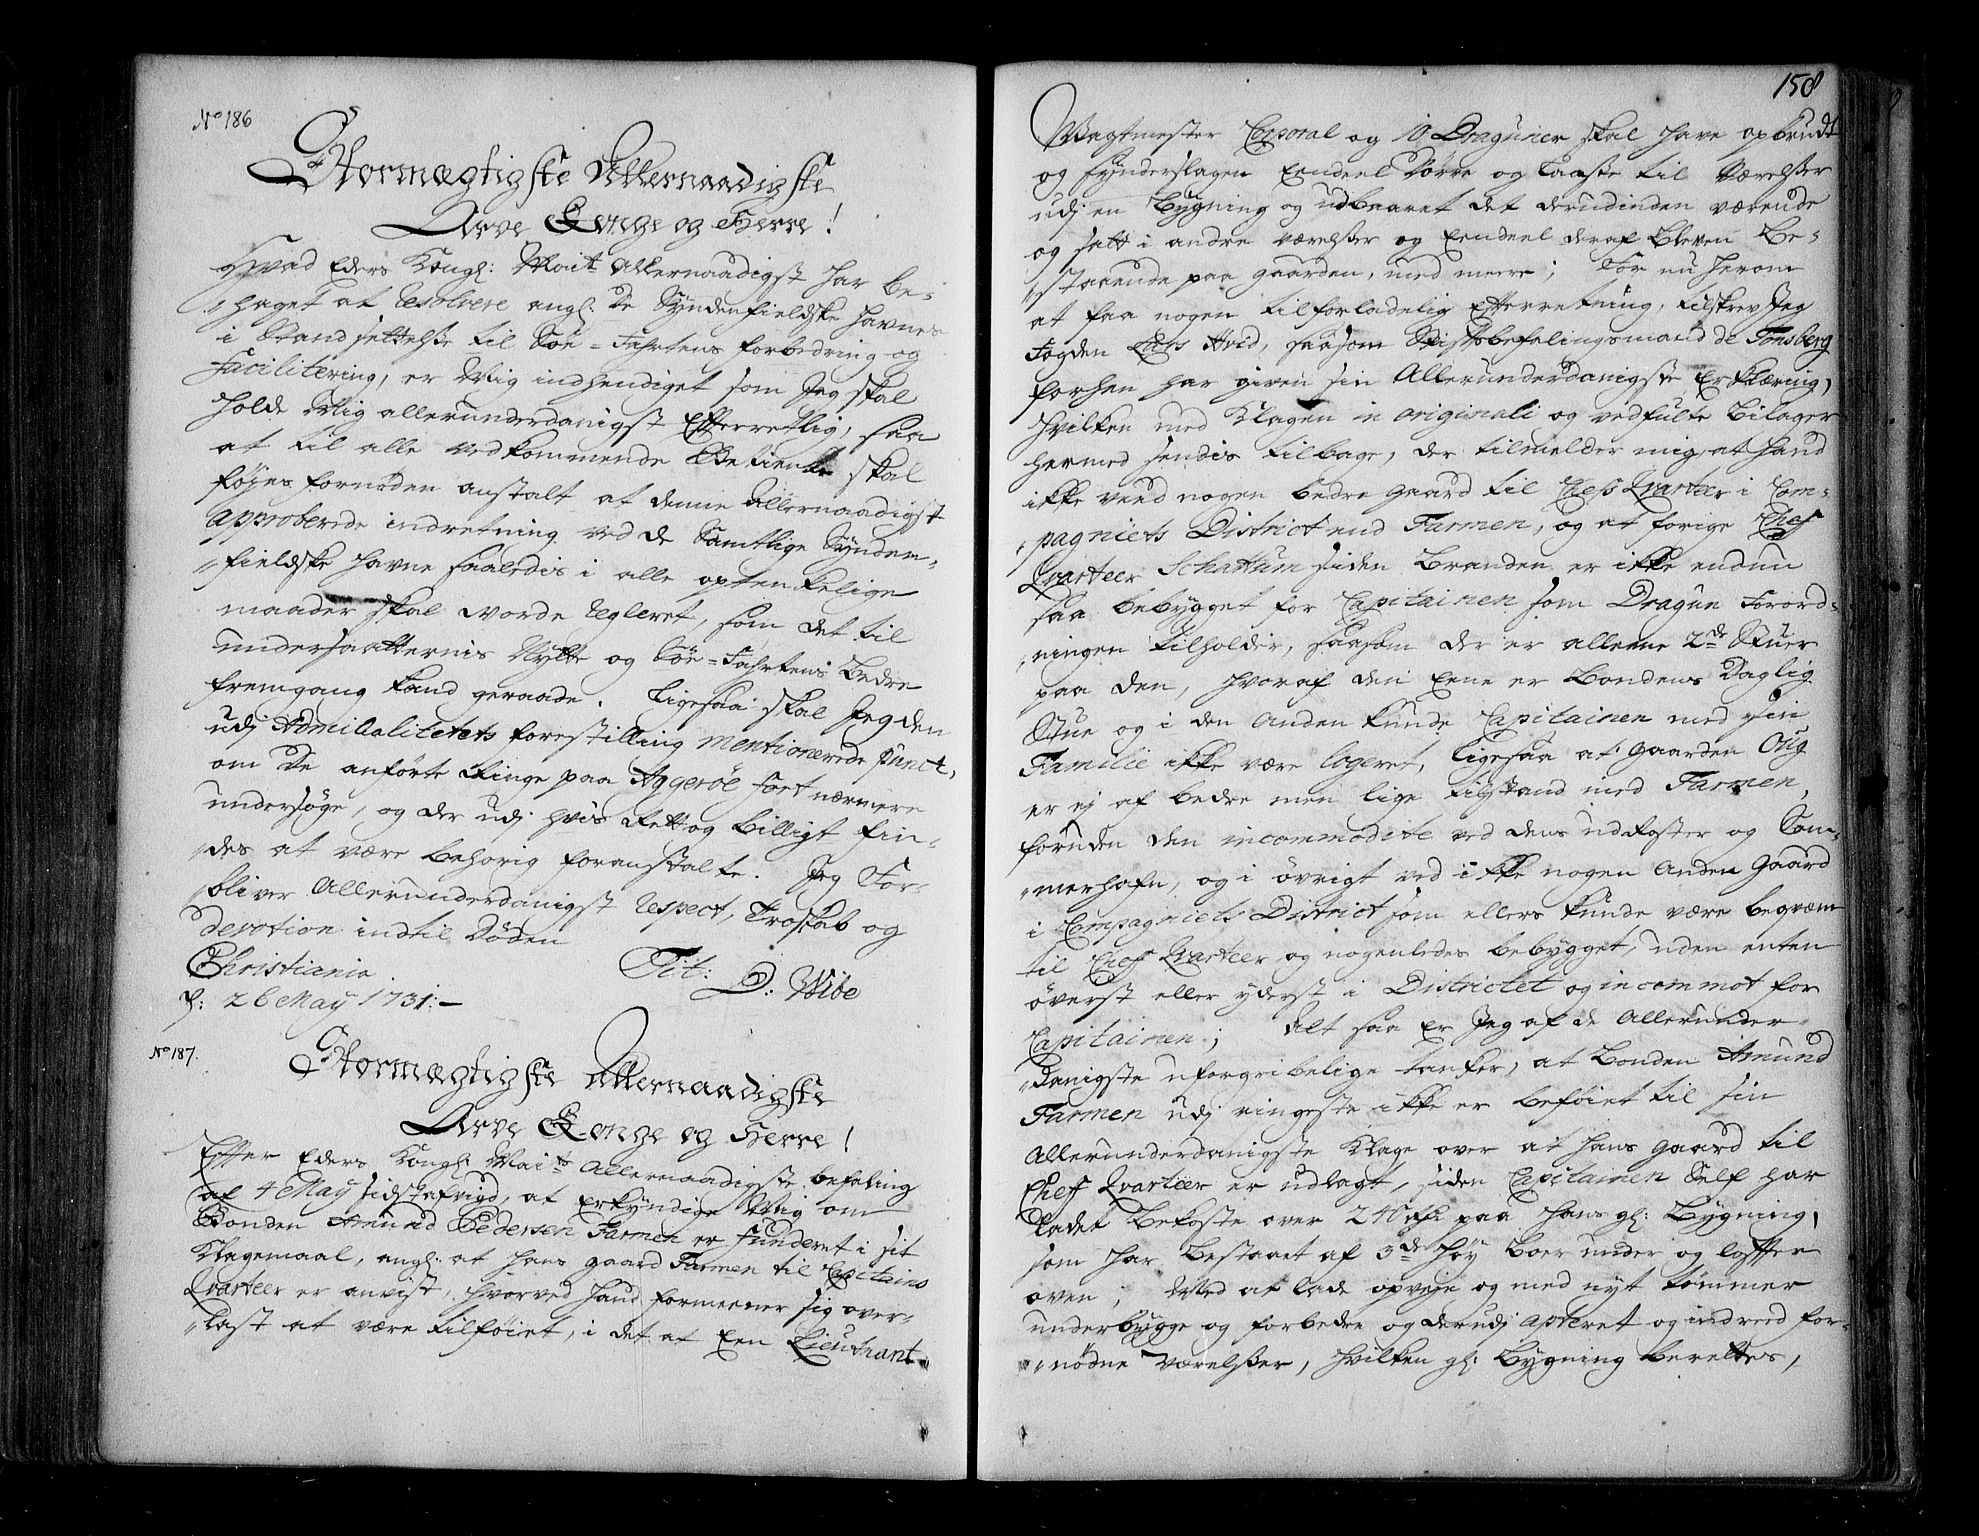 No 186
Stormægtigste Allernaadigste
Arve Konge og Herre!
Hvad Eders Kongl: Mait Allernaadigst har be-
haget at Resolvere angl: De Syndenfieldske Havnes
i Stand settelse til Söe-Fahrtens forbedring og
Facilitering, er Mig indhendiget som Jeg skal
holde Mig allerunderdanigst Efterretlig, saa
at til alle vedkommende Betiente skal
føyes fornøden anstalt at denne Allernaadigst
approberede indretning ved de Samtlige Synden-
fieldske havne saaledis i alle optenkelige
maader skal worde Regleret, som det til
undersaatternis Nytte og Söe-Fahrtens Bedre
fremgang kand geraade. Ligesaa skal Jeg den
udj Admiralitetets forestilling mentionerede punct,
om De anförte Ringe paa Aggeröe fort nærmere
undersøge, og der udj hvis Ret og billigt fin-
des at være behörig foranstalte. Jeg For-
bliver Allerunderdanigst Respect, Troskab og
devotion indtil Döden
Christiania Tit:
d: 26 May 1731:- D: Wibe
No 187.
Stormægtigste Allernaadigste
Arve Konge og Herre!
Efter Eders Kongl: Maits Allernaadigste befaling
af 4 May sidst afvigd, at Erkyndige Mig om
Bonden Amund Pedersen Farmen er funderet i sit
Klagemaal, angl: at hans gaard Farmen til Capitains
Qvarteer er anvist, hvorved hand formeener sig over-
last at være tilföiet, i det at Een Lieutnant
158
Wagtmester Corporal og 10 Draguner skal have opbrudt
og synderslagen Eendeel Dörre og Laaste til Værelser
udj en Bygning og udbaaret det derudinden værende
og satt i andre værelser og Eendeel deraf bleven be-
staaende paa gaarden, med meere; For nu herom
at faa nogen tilforladelig Efterretning, tilskrev Jeg
Fogden Lars Hvid, saasom Stiftsbefalingsmand de Tonsberg
forhen har given sin Allerunderdanigste Erklæring,
hvilken med Klagen in originali og vedfulte Bilager
hermed sendis tilbage, der tilmelder mig, at hand
ikke veed nogen bedre gaard til Chefs Qvarteer i Com-
pagniets District end Farmen, og at forige Chef
Qvarteer Schattum siden Branden er ikke endnu
saa bebygget for Capitainen som Dragun Forord-
ningen tilholder, saasom der er alleene 2de Stuer
paa den, hvoraf den Eene er Bondens Daglig
Stue og i den Anden kunde Capitainen med sin
Familie ikke være logeret, ligesaa at gaarden Oug
er ej af bedre men lige tilstand med Farmen,
foruden den incommodite ved dens udkoster og Som-
merhafn, og i övrigt ved ikke nogen Anden gaard
i Compagniets District som ellers kunde være beqvæm
til Chef Qvarteer og nogenledes bebygget, uden enten
överst eller yderst i Districtet og incommot for
Capitainen; Alt saa er Jeg af de Allerunder-
danigste uforgribelige tanker, at Bonden Amund
Farmen udj ringeste ikke er beföiet til sin
Allerunderdanigste Klage over at hans gaard til
Chef Qvarteer er udlagt, siden Capitainen Self har
ladet bekoste over 240 Rdr paa hans gl: Bygning,
som har Bestaaet af 3de höy Boer under og lofter
oven, Ved at lade opveje og med nyt tømmer
underbygge og forbedre og derudj apteret og indreed for-
nödne værelser, hvilken gl: Bygning berettes,